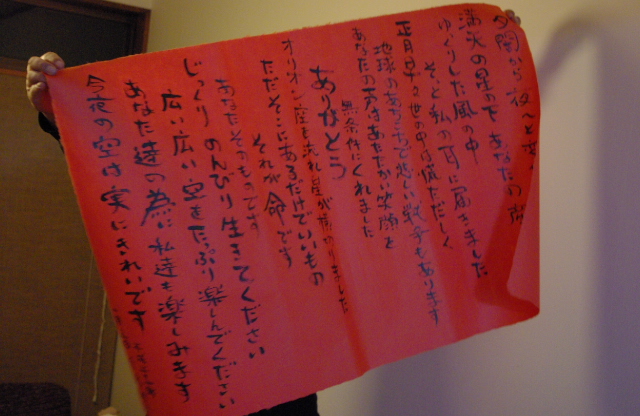 夕闇から夜へと
満天の星の下 あなたの声
ゆっくりした風の中
そっと私の耳に届きました
正月早々世の中は慌ただしく
地球のあちこちで悲しい戦争もあります
あなたの声はあたたかい笑顔を
無条件にくれました
ありがとう
オリオン座を流れ星が横切りました
ただそこにあるだけでいいもの
それが命です
あなたそのものです
じっくりのんびり生きてください
広い広い空をたっぷり楽しんでください
あなた達の為に私達も楽しみます
今夜の空は実にきれいです